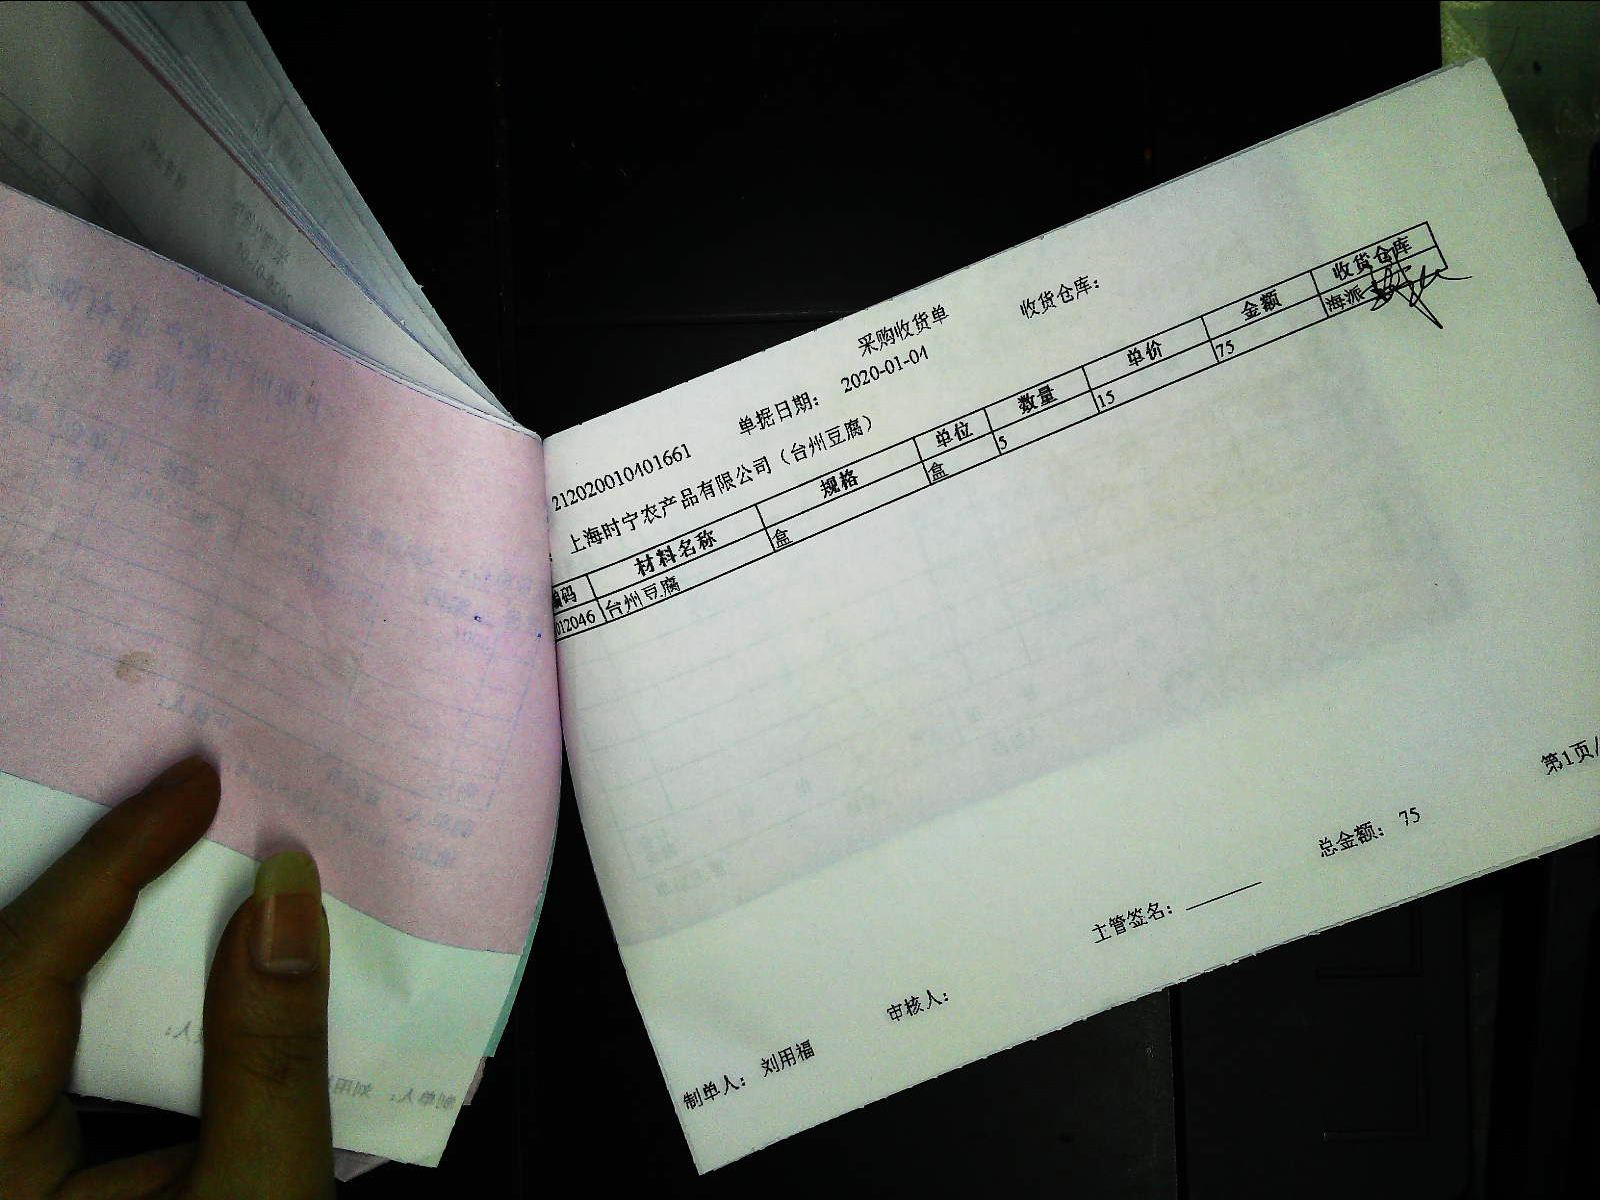 采购收货单
212020010401661 单据日期: 2020-01-04 收货仓库:
上海时宁农产品有限公司（台州豆腐）
编码 材料名称 规格 单位 数量 单价 金额 收货仓库
012046 台州豆腐 盒 盒 5 15 75 海派
第1页/
制单人: 刘用福 审核人: 主管签名: 总金额: 75